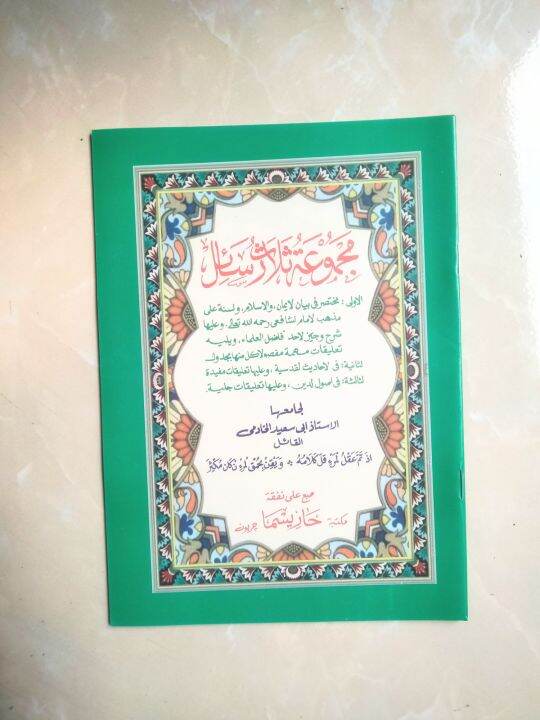 مجموعة ثلاث رسائل
الاولى: مختصر فى بيان لايمان، والاسلام، ولسنة على
مذهب لامام لشافعى رحمه الله تعالى، وعليها
شرح وجيز لاحد فاضل العلماء، ويليه
تعليقات مهمة مفصولا كل منها بجدول
لثانية: فى لاحاديث لقدسية، وعليها تعليقات مفيدة
لثالثة: فى اصول لدين، وعليها تعليقات جلية.
لجامعها
الاستاذ ابى سعيد الخادمى
القائل
اذ تم عقل لمرء قل كلامه * وايقن بحمق لمرء ن كان مكثر
طبع على نفقة
مكتبة